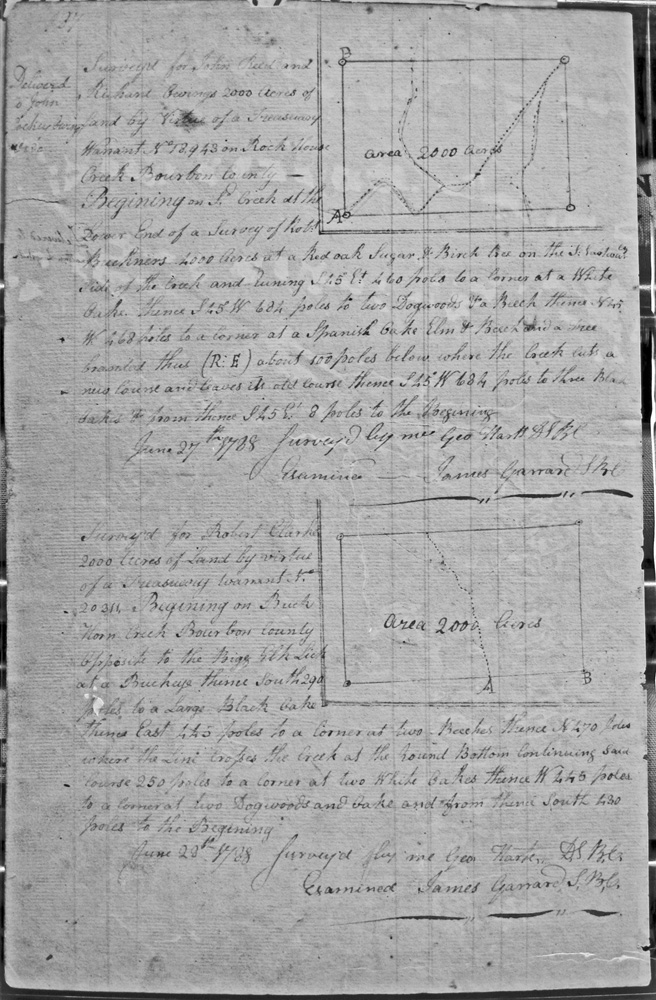 Delivered
to John
Survey'd for John Reed and
Richard Owings 2000 Acres of
Land by Virtue of a Treasuary
Warrant No 18943 on Rock house
Creek Bourbon County —
Begining on Sd Creek at the
Lower End of a Survey of Robt
Breckners 2000 Acres at a Red oak Sugar & Birch tree on the
Side of the Creek and runing S 45 Et 460 poles to a Corner at a White
Oake thence S 45 W 684 poles to two Dogwoods & a Beech thence N 45
W 468 poles to a Corner at a Spanish Oake Elm & Beach and a tree
branded thus (R:E) about 100 poles below where the Creek cuts a
new Course and leaves its old course thence S 45 W 684 poles to three Black
oakes & from thence S 45 Et 8 poles to the Begining
June 27th 1788 Survey'd by me Geo Hart DSBC
Examined — James Garrard SBC
B
area 2000 Acres
A
Survey'd for Robert Clarke
2000 Acres of Land by virtue
of a Treasuary Warrant No
20311 Begining on Buck
Horn Creek Bourbon County
Opposite to the Bigg Elk Lick
at a Buckeye thence South 290
poles to a Large Black Oake
thence East 445 poles to a Corner at two Beeches thence N 470 Poles
where the Line Crosses the Creek at the round Bottom Continuing said
Course 250 poles to a Corner at two White Oakes thence W 445 poles
to a corner at two Dogwoods and Oake and from thence South 430
poles to the Begining
June 28th 1788 Survey'd by me Geo Hart DSBC
Examined James Garrard S.B.C.
Area 2000 Acres
A
B